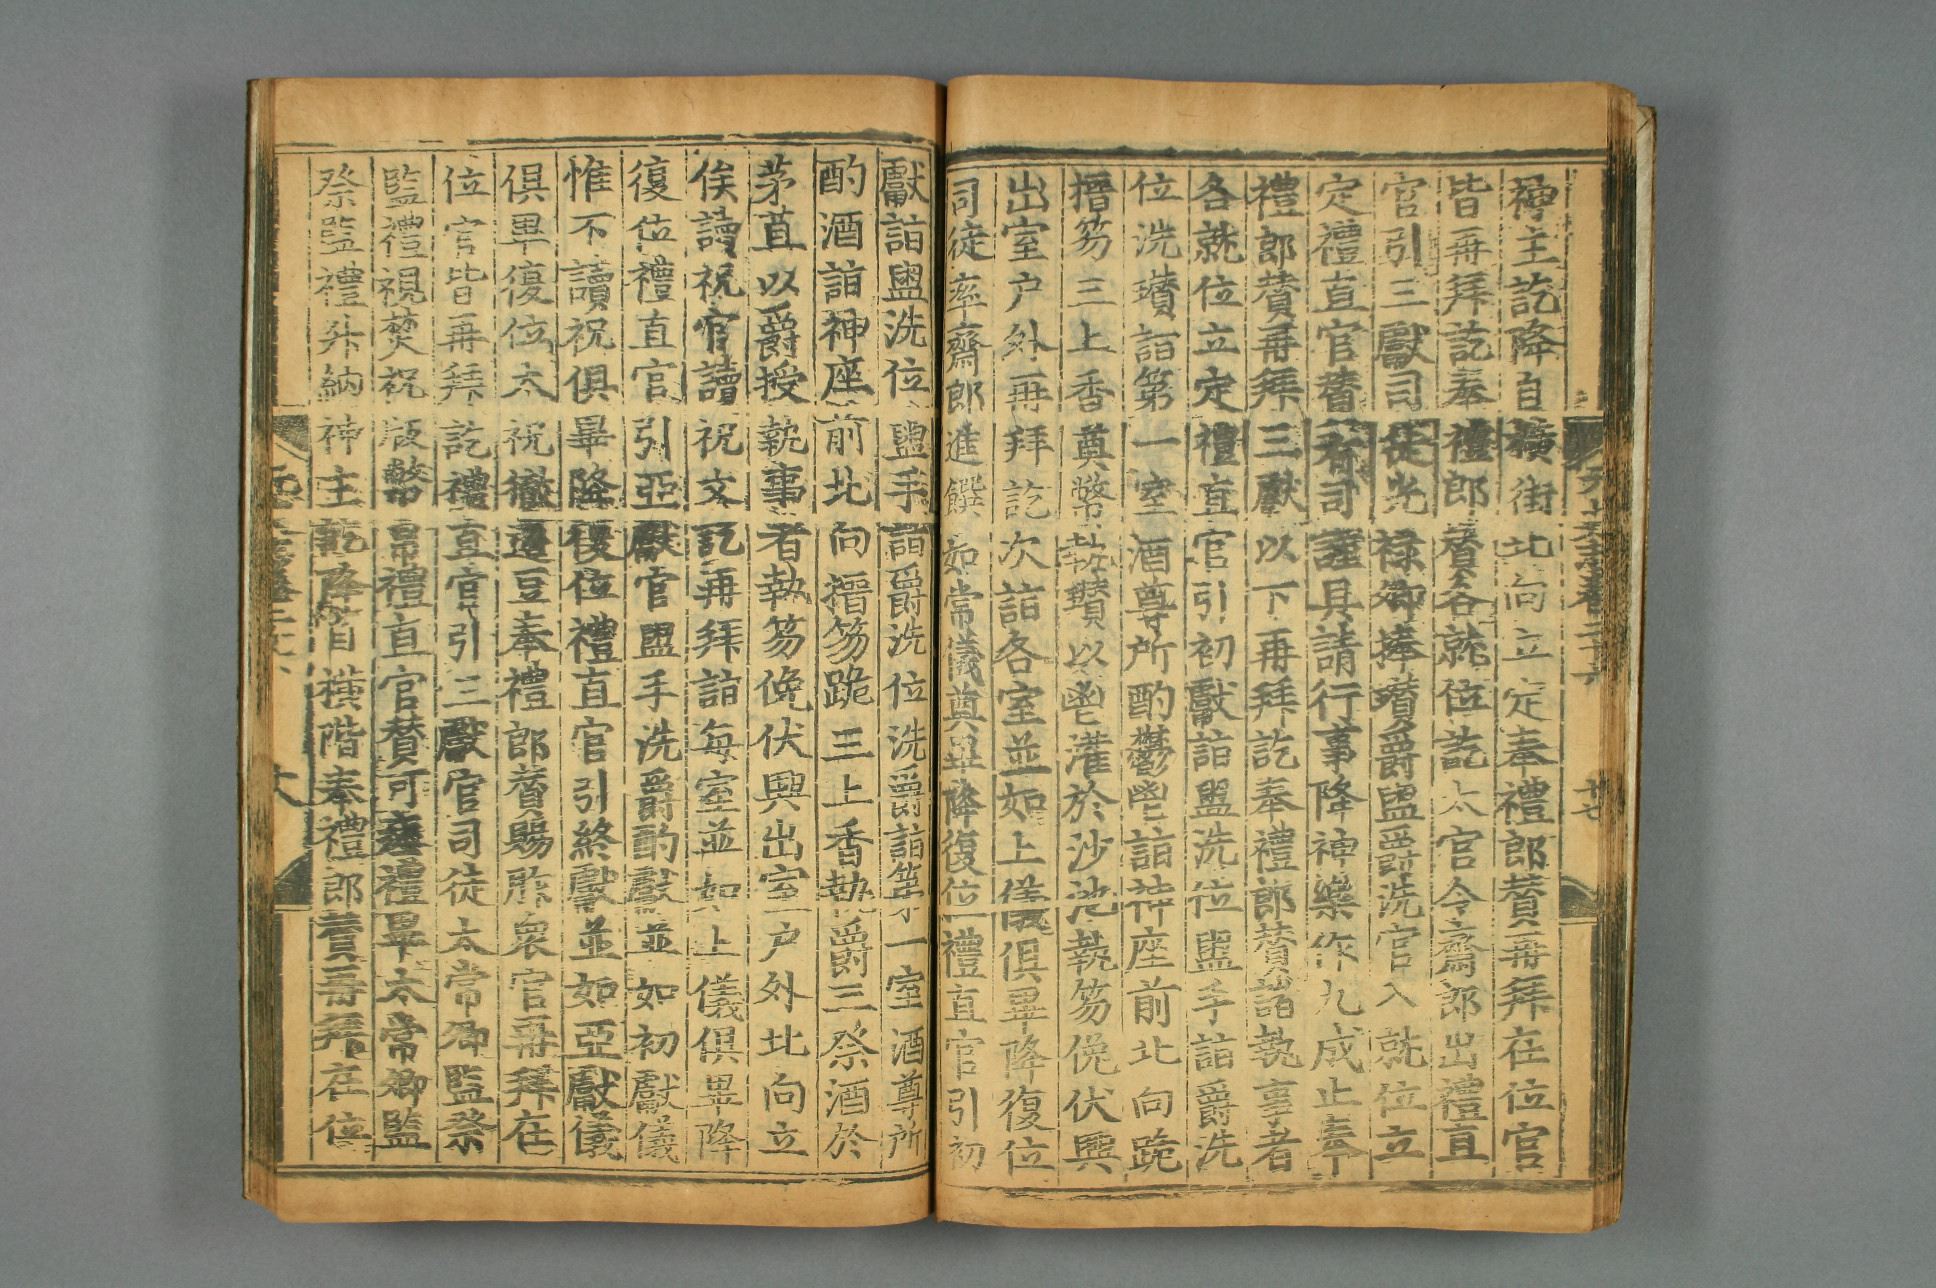 神主訖降自橫街北向立定奉禮郎贊再拜在位官
皆再拜訖奉禮郎贊各就位訖太官令齋郎出禮直
官引三獻司徒光祿卿捧瓚爵盥爵洗官入就位立
定禮直官贊有司謹具請行事降神樂作九成止奉
禮郎贊再拜三獻以下再拜訖奉禮郎贊諸執事者
各就位立定禮直官引初獻詣盥洗位盥手詣爵洗
位洗瓚詣第一室酒尊所酌鬱鬯詣神座前北向跪
搢笏三上香奠幣執瓚以鬯灌於沙池執笏俛伏興
出室户外再拜訖次詣各室並如上儀俱畢降復位
司徒率齋郎進饌如常儀奠畢降復位禮直官引初
獻詣盥洗位盥手詣爵洗位洗爵詣第一室酒尊所
酌酒詣神座前北向搢笏跪三上香執爵三祭酒於
茅苴以爵授執事者執笏俛伏興出室户外北向立
俟讀祝官讀祝文訖再拜詣每室並如上儀俱畢降
復位禮直官引亞獻官盥手洗爵酌獻並如初獻儀
惟不讀祝俱畢降復位禮直官引終獻並如亞獻儀
俱畢復位太祝徹籩豆奉禮郎贊賜胙衆官再拜在
位官皆再拜訖禮直官引三獻官司徒太常卿監祭
監禮視焚祝版幣帛禮直官贊可瘞禮畢太常卿監
祭監禮升納神主訖降自橫階奉禮郎贊再拜在位